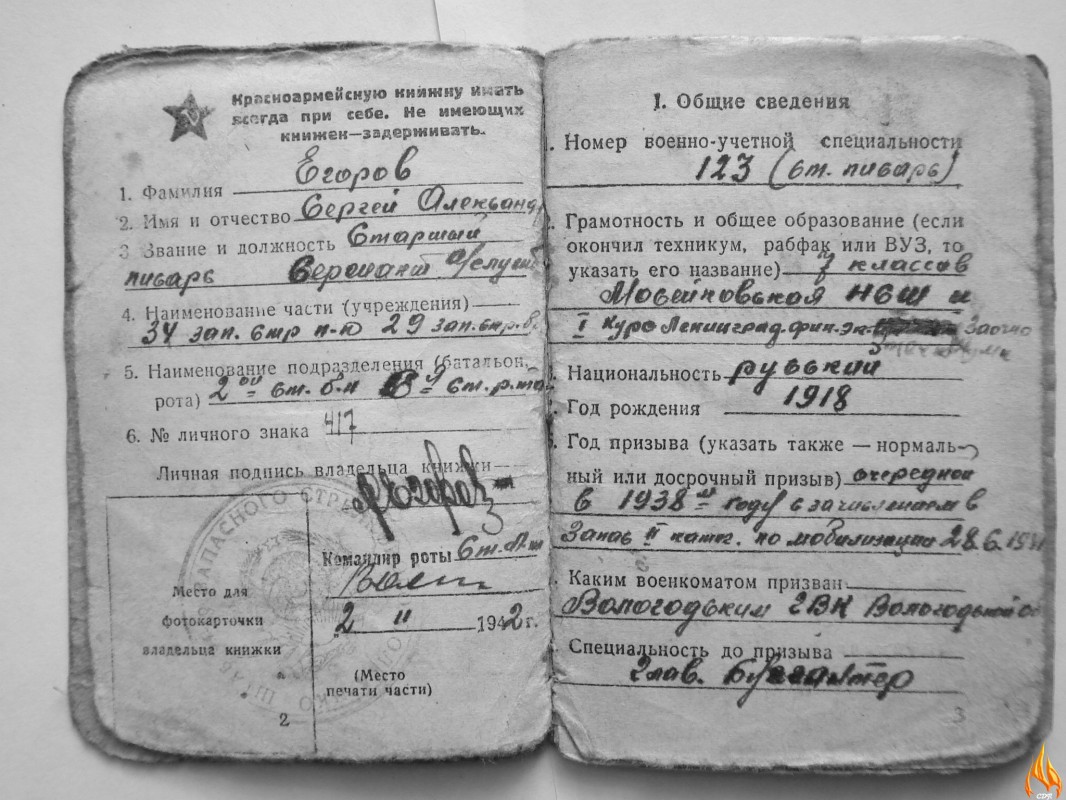 Красноармейскую книжку иметь
всегда при себе. Не имеющих
книжек—задерживать.
1. Фамилия Егоров
2. Имя и отчество Сергей Александ
3 Звание и должность Старший
писарь Сержант
4. Наименование части (учреждения)
34 зап. стр п-к 29 зап. стр.
5. Наименование подразделения (батальон,
рота) 2ой ст. б-н ст. рота
6. № личного знака 417
Личная подпись владельца книжки
Егоров
Командир роты Ст.
2 II 1942 г.
Место для
фотокарточки
владельца книжки
(Место
печати части)
ЗАПАСНОГО СТРЕЛ
2
I. Общие сведения
Номер военно-учетной специальности
123 (ст. писарь)
Грамотность и общее образование (если
окончил техникум, рабфак или ВУЗ, то
указать его название) 7 классов
НСШ и
I курс Ленинград. фин. эк. Заочно
техникума
Национальность русский
Год рождения 1918
Год призыва (указать также — нормаль-
ный или досрочный призыв) очередной
в 1938м году с зачислением в
Запас II катег. по мобилизации 28.6.1941
Каким военкоматом призван
Вологодским ГВК Вологодской об
Специальность до призыва
Глав. Бухгалтер
3